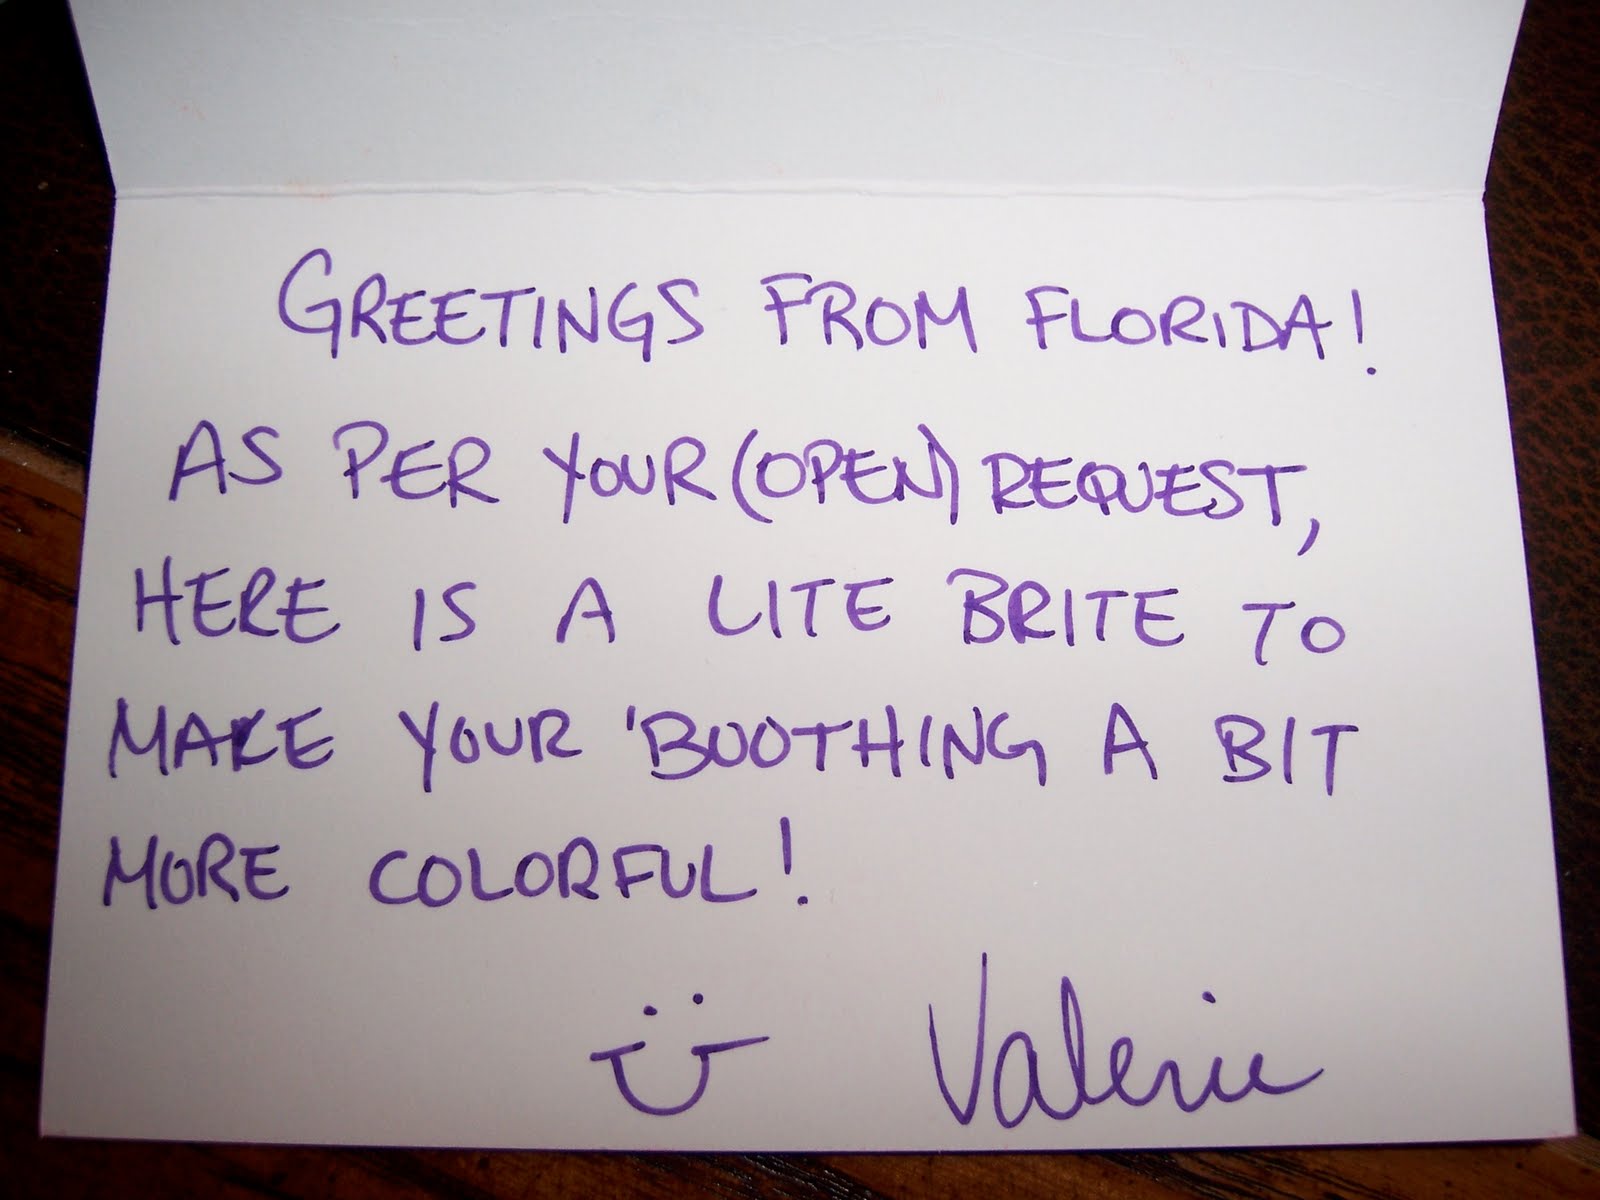 GREETINGS FROM FLORIDA!
AS PER YOUR (OPEN) REQUEST,
HERE IS A LITE BRITE TO
MAKE YOUR 'BOOTHING A BIT
MORE COLORFUL!
Valerie